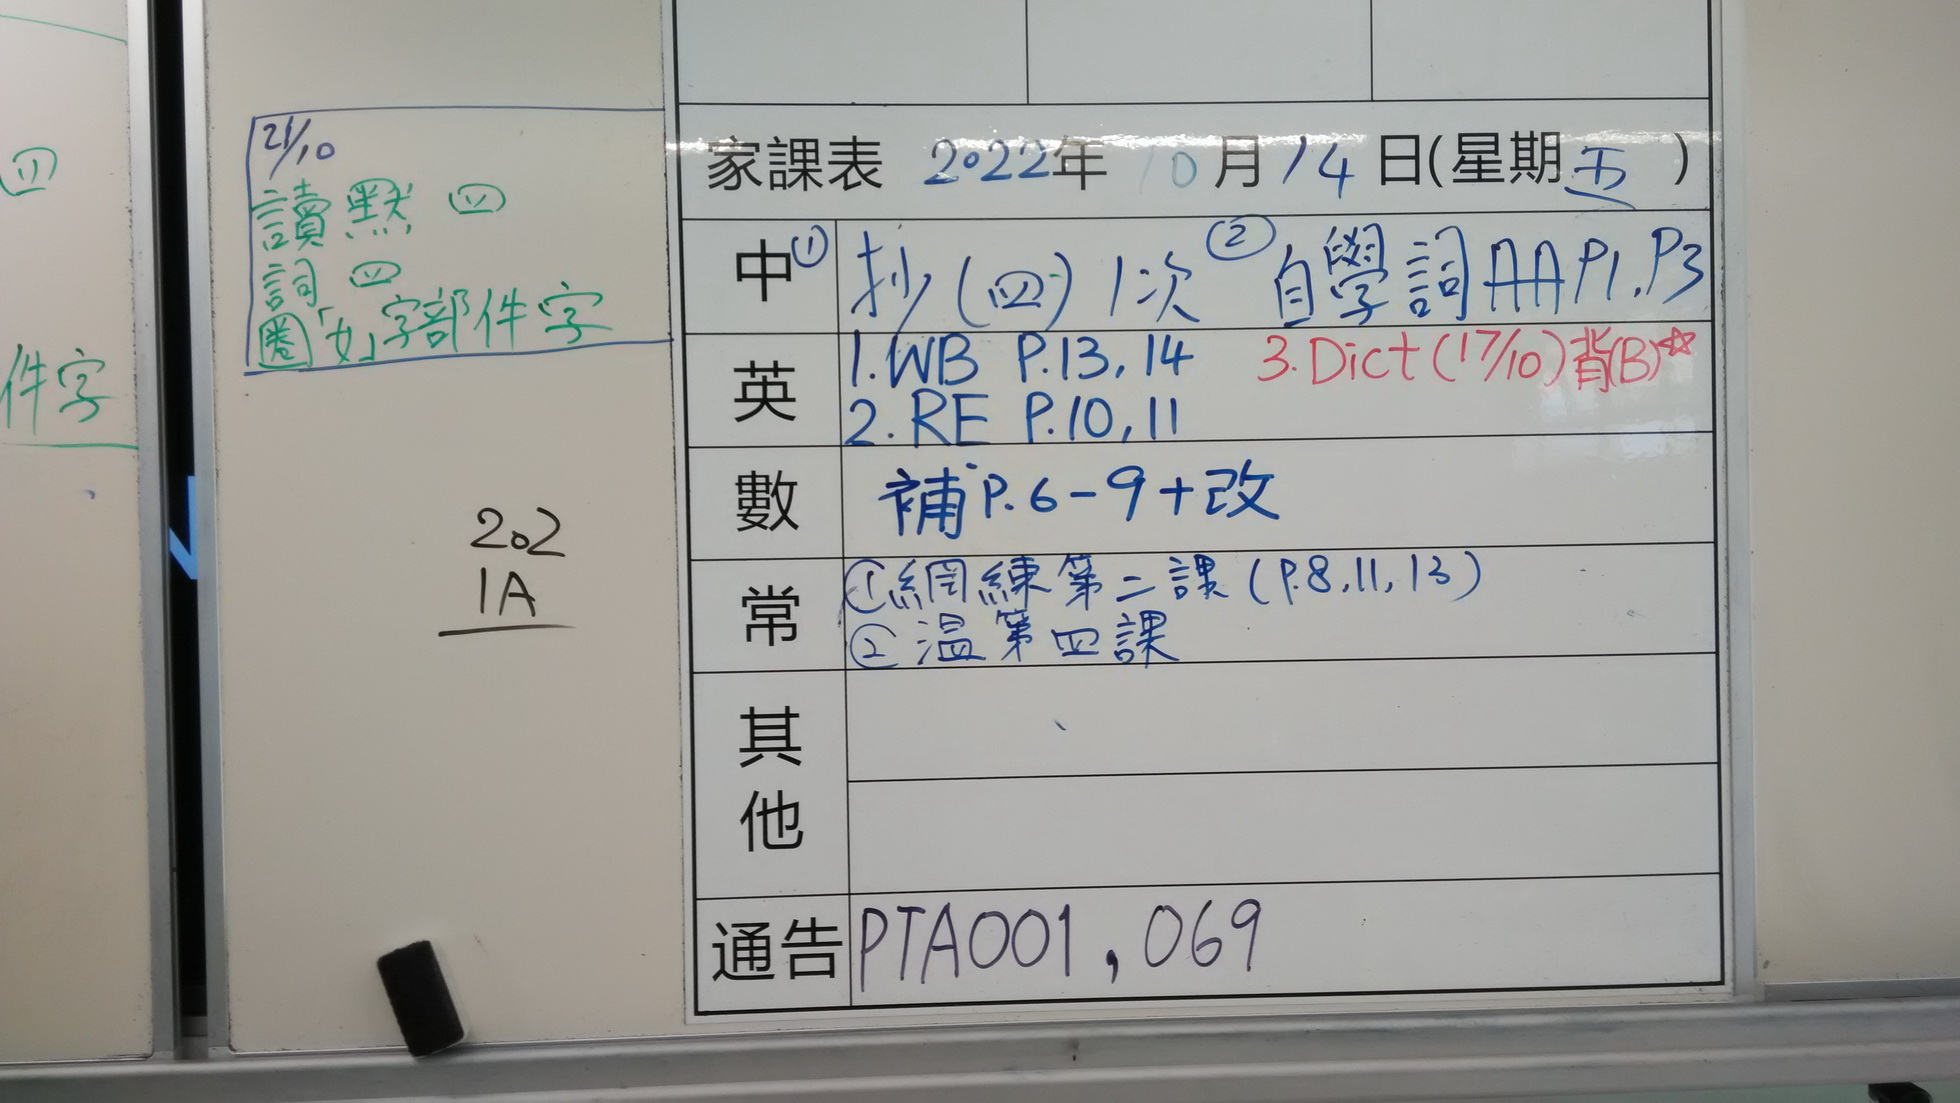 四
件字
21/10
讀默 四
詞 四
圈「女」字部件字
202
1A
家課表 2022年 10月14日(星期五)
中 ① 抄(四)1次 ② 自學詞AA P1, P3
英 1. WB P.13, 14 3. Dict (17/10) 背(B)☆
2. RE P.10, 11
數 補P.6-9+改
常 ①網練第二課(P.8, 11, 13)
② 温第四課
其他
通告 PTA001, 069